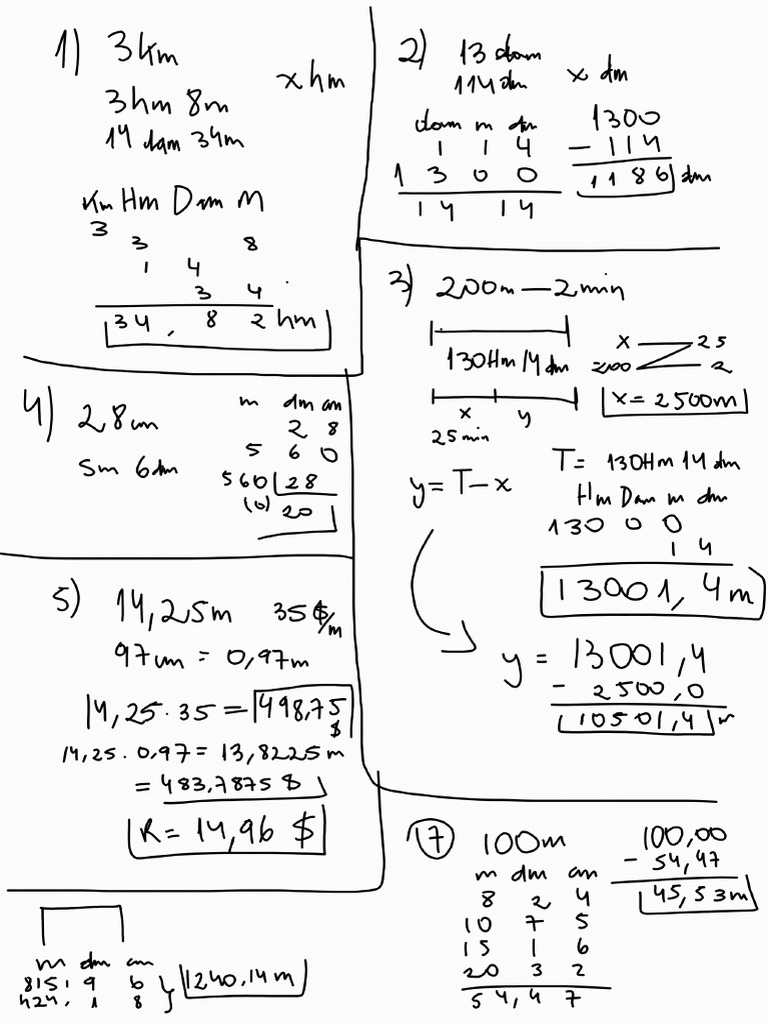 1) 3km
x hm
3hm 8m
14 dam 34m
Km Hm Dam M
3
3 8
1 4
3 4
34, 8 2 hm
2) 13 dam
114 dm
x dm
dam m dm
1 1 4
1 3 0 0
14 14
1300
- 114
1186 dm
3) 200m — 2min
130Hm 14 dm
x y
25min
x 25
200 2
x = 2500m
y = T - x
T = 130Hm 14 dm
Hm Dam m dm
130 0 0
1 4
13001, 4m
y = 13001,4
- 2500,0
10501,4 m
4) 28cm
5m 6dm
m dm cm
2 8
5 6 0
560 28
(0) 20
5) 14,25m 35$/m
97cm = 0,97m
14,25 · 35 = 498,75 $
14,25 · 0,97 = 13,8225m
= 483,7875 $
R = 14,96 $
m dm cm
815, 9 6
424, 1 8
1240,14m
17 100m
m dm cm
8 2 4
10 7 5
15 1 6
20 3 2
5 4, 4 7
100,00
- 54,47
45,53m